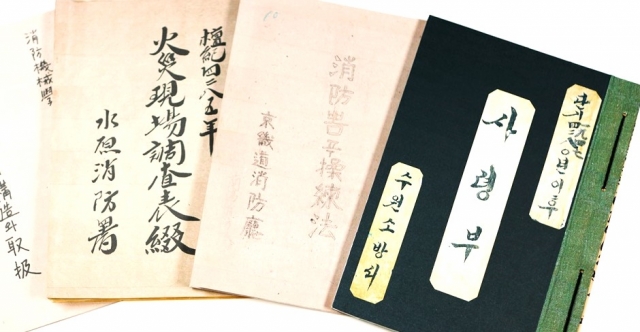 消防機械學
構造와取扱
檀紀四二八五年
火災現場調査表綴
水原消防署
消防 操練法
京畿道消防廳
년이후
사령부
수원소방서